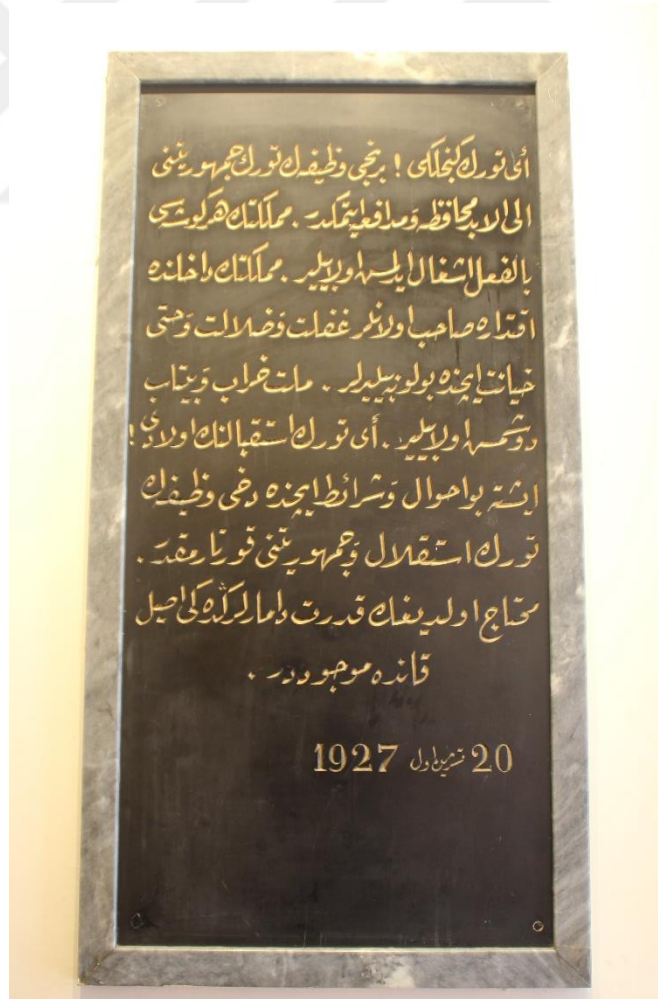 أی تورك كنجلكی ! برنجی وظیفه‌ك تورك جمهوریتنی
الی الابد محافظه وَ مدافعه ایتمكدر . مملكتك هر كوشه‌سی
بالفعل اشغال ایدلمش اولابیلیر . مملكتك داخلنده
اقتداره صاحب اولانلر غفلت وَ ضلالت وَ حتی
خیانت ایچنده بولونه‌بیلیرلر . ملت خراب وَ بیتاب
دوشمش اولابیلیر . أی تورك استقبالنك اولادی !
ایشته بو احوال وَ شرائط ایچنده دخی وظیفه‌ك
تورك استقلال وَ جمهوریتنی قورتارمقدر .
محتاج اولدیغك قدرت دامارلرڭده كی اصیل
قانده موجوددر .
20 تشرین اول 1927